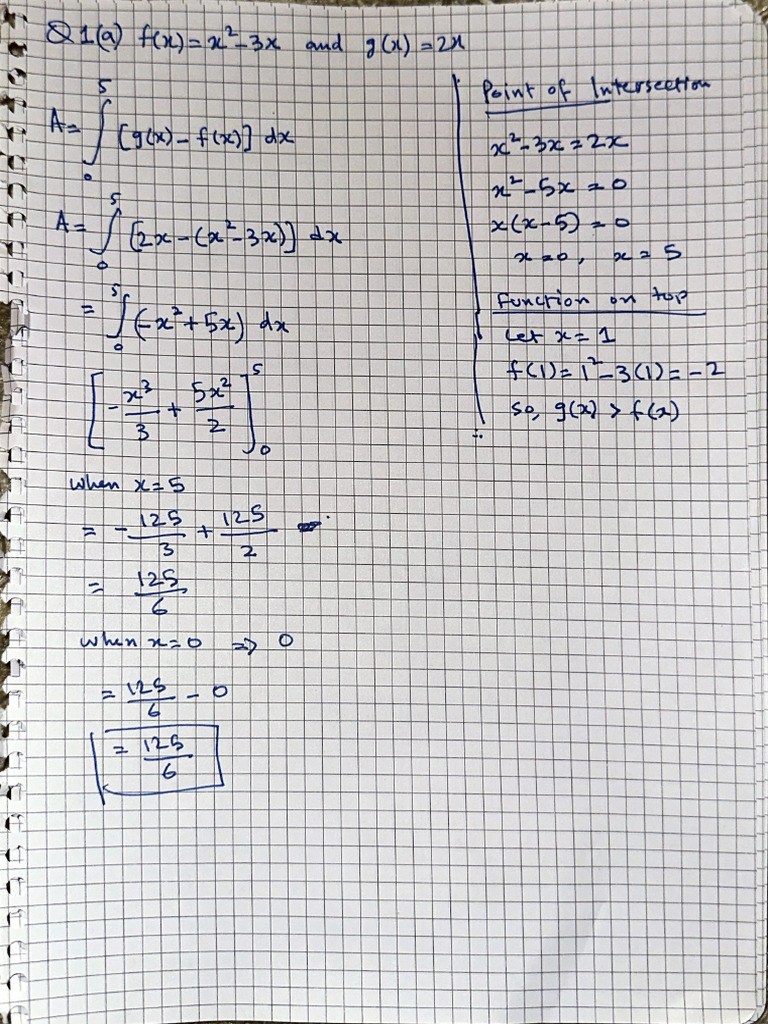 Q1(a) f(x) = x² - 3x and g(x) = 2x
A = ∫₀⁵ [g(x) - f(x)] dx
A = ∫₀⁵ [2x - (x² - 3x)] dx
= ∫₀⁵ (-x² + 5x) dx
[-x³/3 + 5x²/2]₀⁵
when x = 5
= -125/3 + 125/2
= 125/6
when x = 0 => 0
= 125/6 - 0
= 125/6
Point of Intersection
x² - 3x = 2x
x² - 5x = 0
x(x - 5) = 0
x = 0, x = 5
function on top
Let x = 1
f(1) = 1² - 3(1) = -2
so, g(x) > f(x)